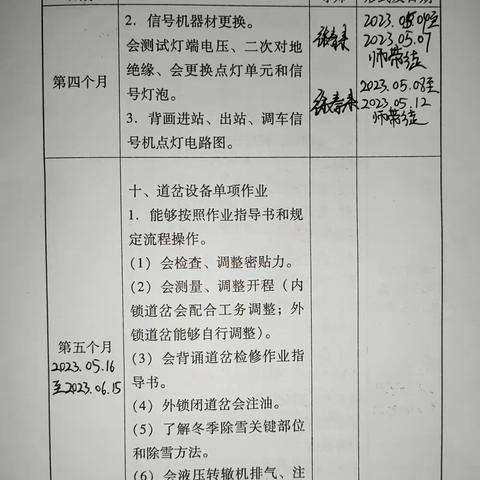 2. 信号机器材更换。
会测试灯端电压、二次对地
绝缘、会更换点灯单元和信
号灯泡。
3. 背画进站、出站、调车信
号机点灯电路图。
第四个月
2023.05.07
师带徒
2023.05.08至
2023.05.12
师带徒
十、道岔设备单项作业
1. 能够按照作业指导书和规
定流程操作。
(1) 会检查、调整密贴力。
(2) 会测量、调整开程（内
锁道岔会配合工务调整；外
锁道岔能够自行调整）。
(3) 会背诵道岔检修作业指
导书。
(4) 外锁闭道岔会注油。
(5) 了解冬季除雪关键部位
和除雪方法。
(6) 会液压转辙机排气、注
第五个月
2023.05.16
至2023.06.15